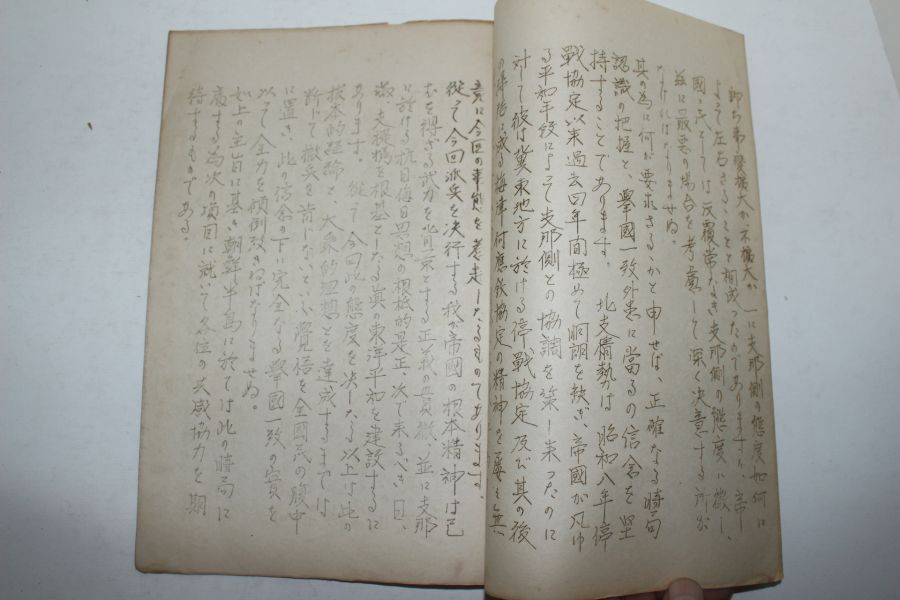 即ち事變擴大か不擴大か一に支那側の態度如何に
よつて左右さるることと相成つたのでありますが、帝
國としては反覆常なき支那側の態度に徴し、
茲に最悪の場合を考慮して深く決意する所が
なければなりませぬ。
其の為に何が要求さるるかと申せば、正確なる時局
認識の把握と、擧國一致外患に當るの信念を堅
持することであります。北支情勢は昭和八年停
戰協定以来過去四年間極めて明朗を缺ぎ、帝國が凡ゆ
る平和手段によつて支那側との協調を策し来つたのに
対して彼は冀東地方に於ける停戰協定及び其の後
の
梅津何應欽協定の精神を
竟に今回の事態を惹起したるものであります。
從って今回派兵を決行する我が帝國の根本精神は已
むを得ざる武力を背景とする正義の貫徹並に支那
に於ける抗日侮日思想の根柢的是正、次で来るべき日、
滿、支提携を根基としたる眞の東洋平和を建設するに
あります。從て今回此の態度を決したる以上は此の
根本的經綸と、大乗的理想とを達成するまでは
断じて撤兵を肯じないといふ覺悟を全國民の腹中
に置き、此の信念の下に完全なる擧國一致の實を
以て全力を傾倒致さねばなりませぬ。
如上の主旨に基き朝鮮半島に於ては此の時局に
處する為次の項目に就いて各位の共感協力を期
待するものである。